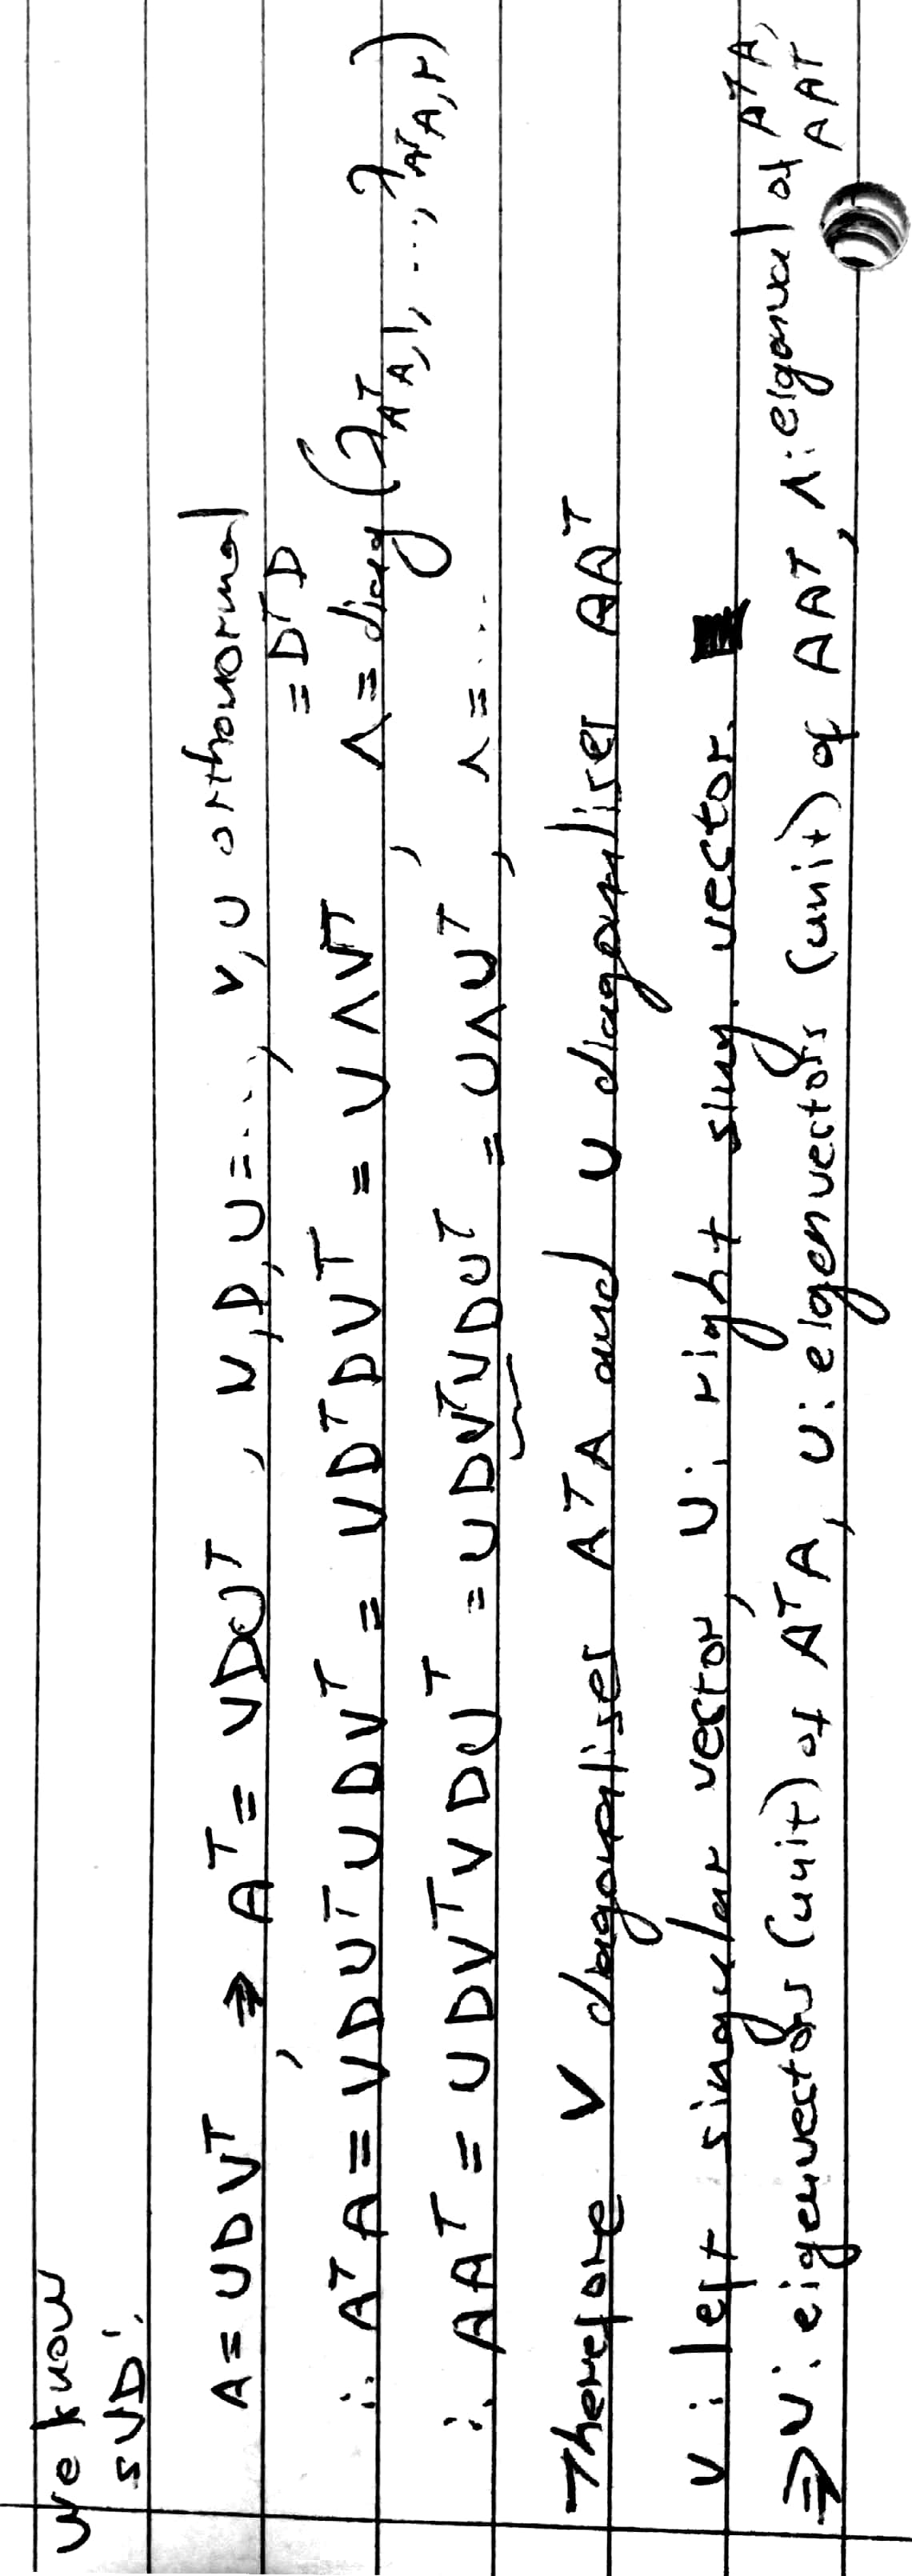 We know
SVD:
A = UDVᵀ, ⇒ Aᵀ = VDUᵀ, V,D,U = ..., V,U orthonormal
∴ AᵀA = VDUᵀUDVᵀ = VDᵀDVᵀ = VΛVᵀ, Λ = diag(λ_AᵀA,1, ..., λ_AᵀA,r) = DᵀD
∴ AAᵀ = UDVᵀVDUᵀ = UDVᵀVDUᵀ = UΛUᵀ, Λ = ...
Therefore V diagonalises AᵀA and U diagonalises AAᵀ
V: left singular vector, U: right sing. vector.
⇒ V: eigenvectors (unit) of AᵀA, U: eigenvectors (unit) of AAᵀ, Λ: eigenval of AᵀA, AAᵀ